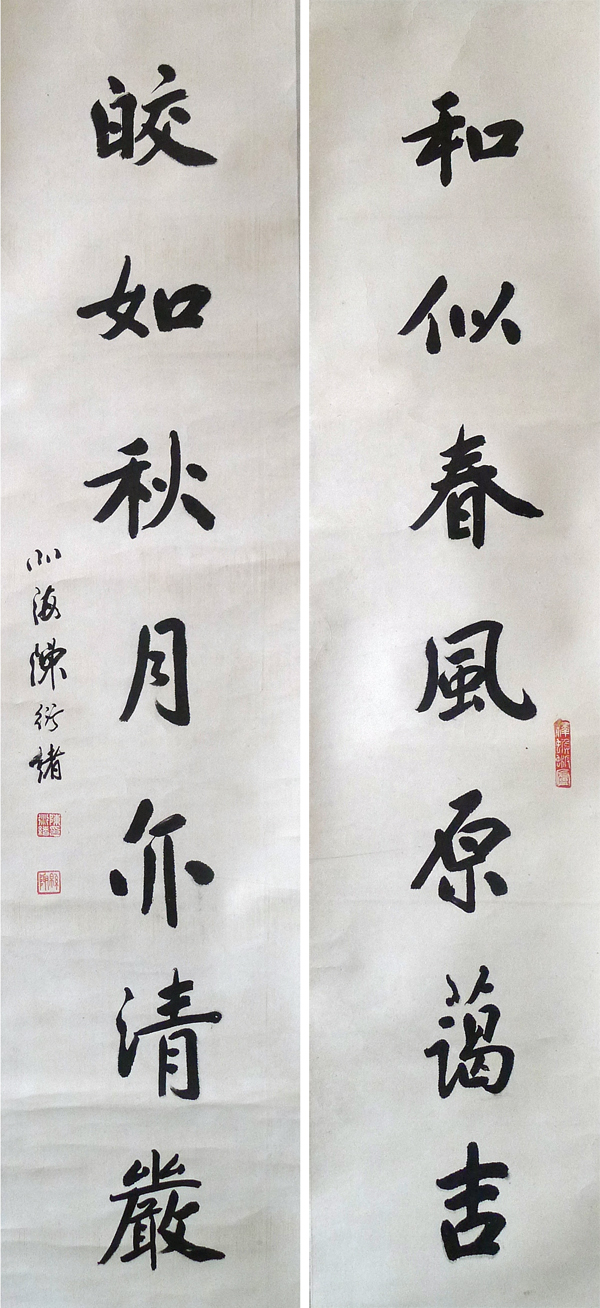 和似春風原藹吉
皎如秋月亦清嚴
北海陳衍緒